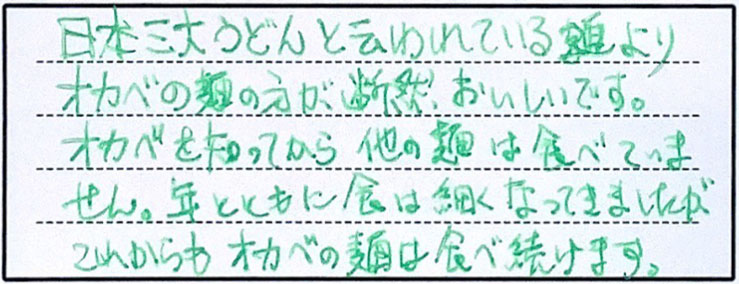 日本三大うどんと云われている麺より
オカベの麺の方が断然、おいしいです。
オカベを知ってから他の麺は食べていま
せん。年とともに食は細くなってきましたが
これからもオカベの麺は食べ続けます。